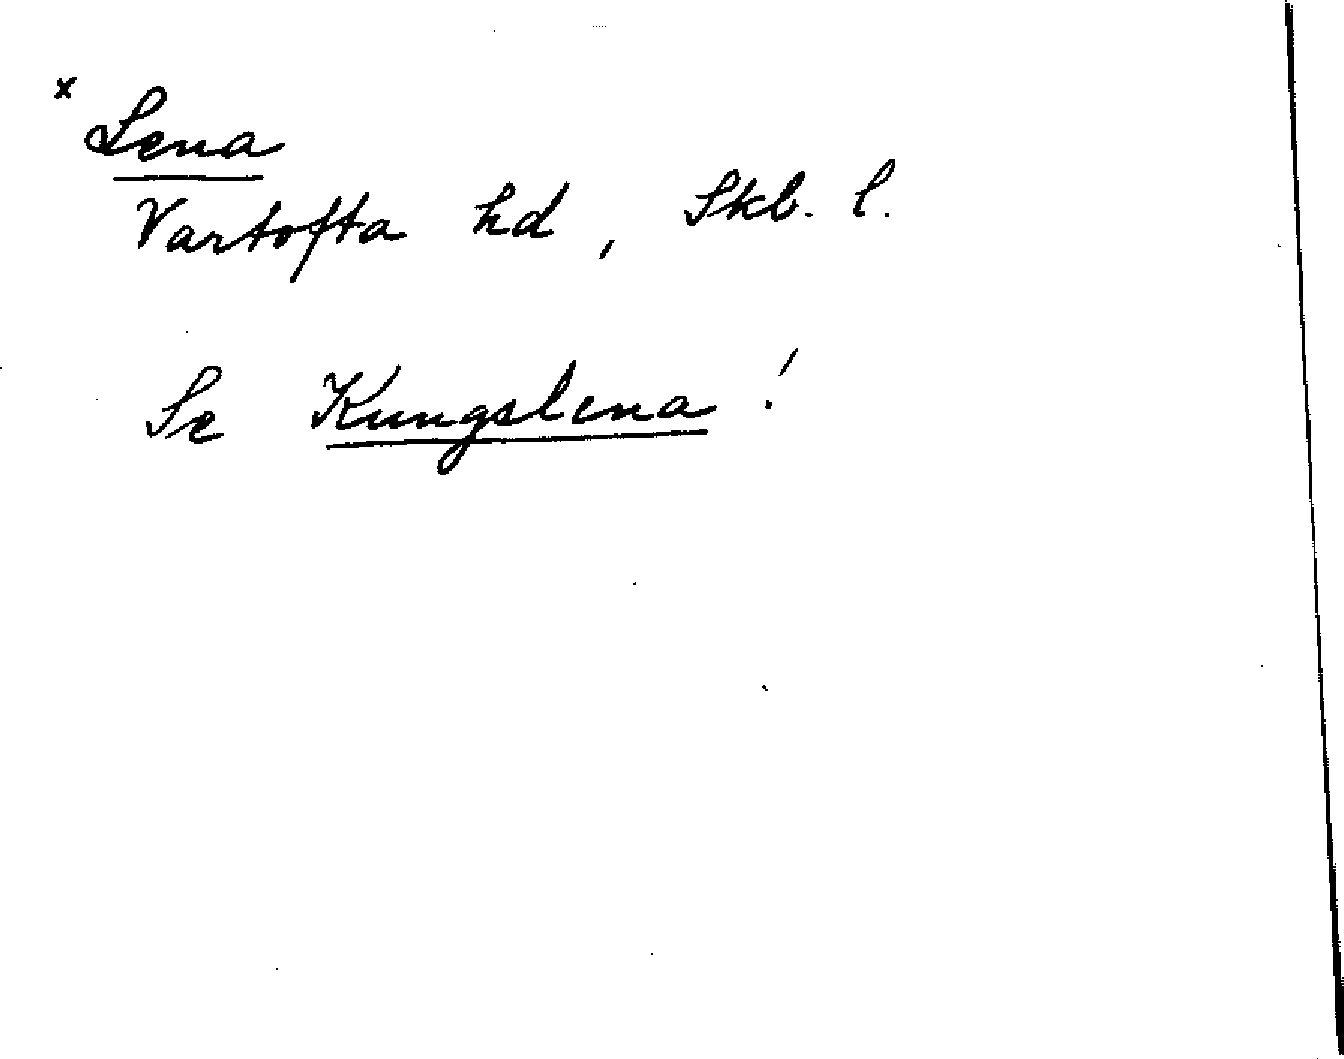 x Lena
Vartofta hd, Skb. l.
Se Kungslena!